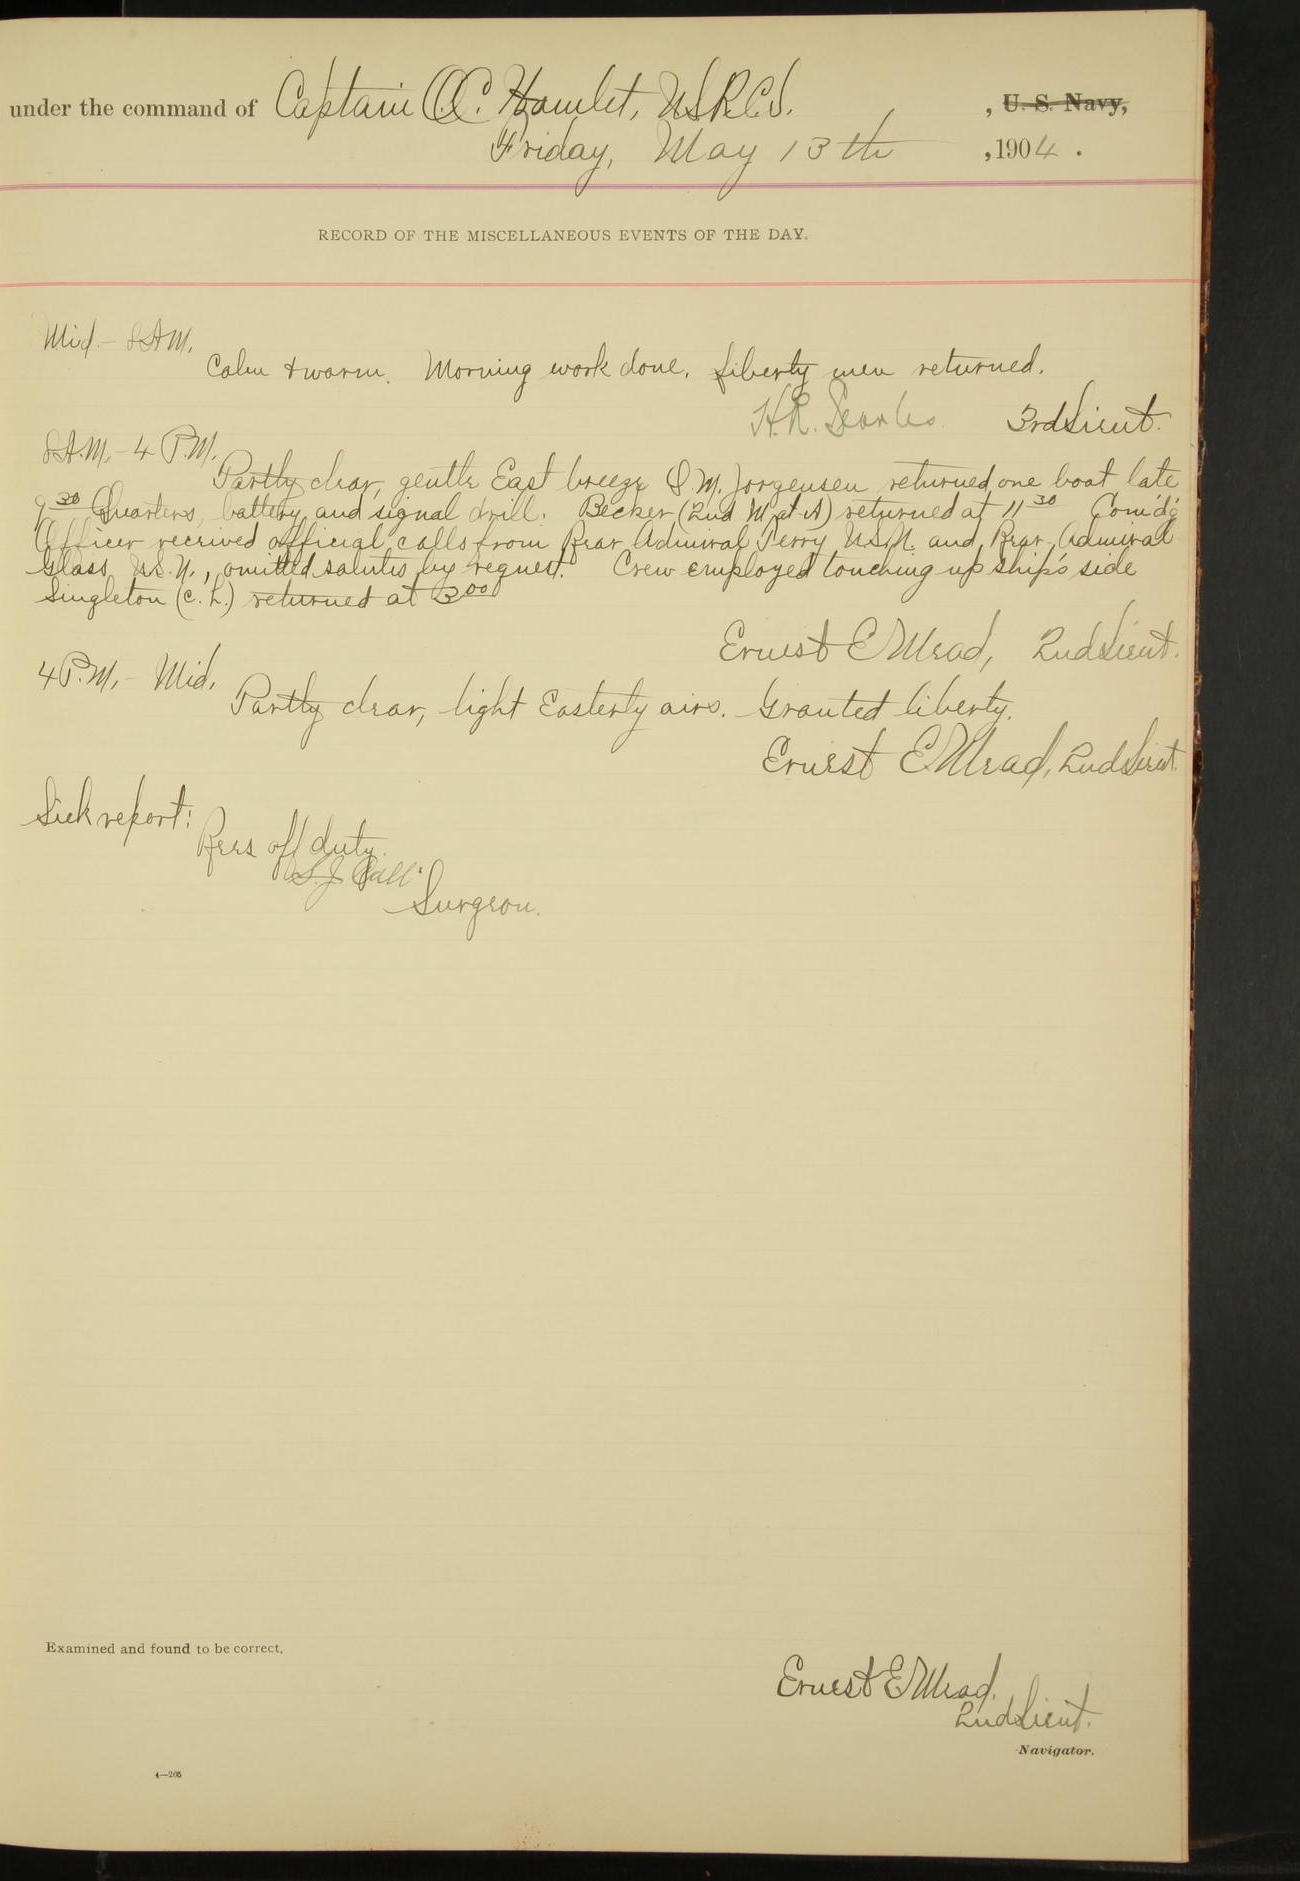 under the command of Captain O.C. Hamlet, U.S.R.C.S. , U. S. Navy,
Friday, May 13th , 1904 .
RECORD OF THE MISCELLANEOUS EVENTS OF THE DAY.
Mid. - 8 A.M.
Calm & warm. Morning work done. Liberty men returned.
H.R. Searles. 3rd Lieut.
8 A.M. - 4 P.M.
Partly clear, gentle East breeze S.M. Jorgensen returned one boat late
9 30 Quarters, battery and signal drill. Becker (2nd M. at A) returned at 11 30 Com'd'g
Officer received official calls from Rear Admiral Terry U.S.N. and Rear Admiral
Glass U.S.N., omitted salutes by request. Crew employed touching up ship's side
Singleton (C.H.) returned at 3 00
Ernest E Mead, 2nd Lieut.
4 P.M. - Mid.
Partly clear, light Easterly airs. Granted liberty.
Ernest E Mead, 2nd Lieut.
Sick report:
Rees off duty.
S.J. Call
Surgeon.
Examined and found to be correct.
Ernest E Mead.
2nd Lieut.
Navigator.
4—205